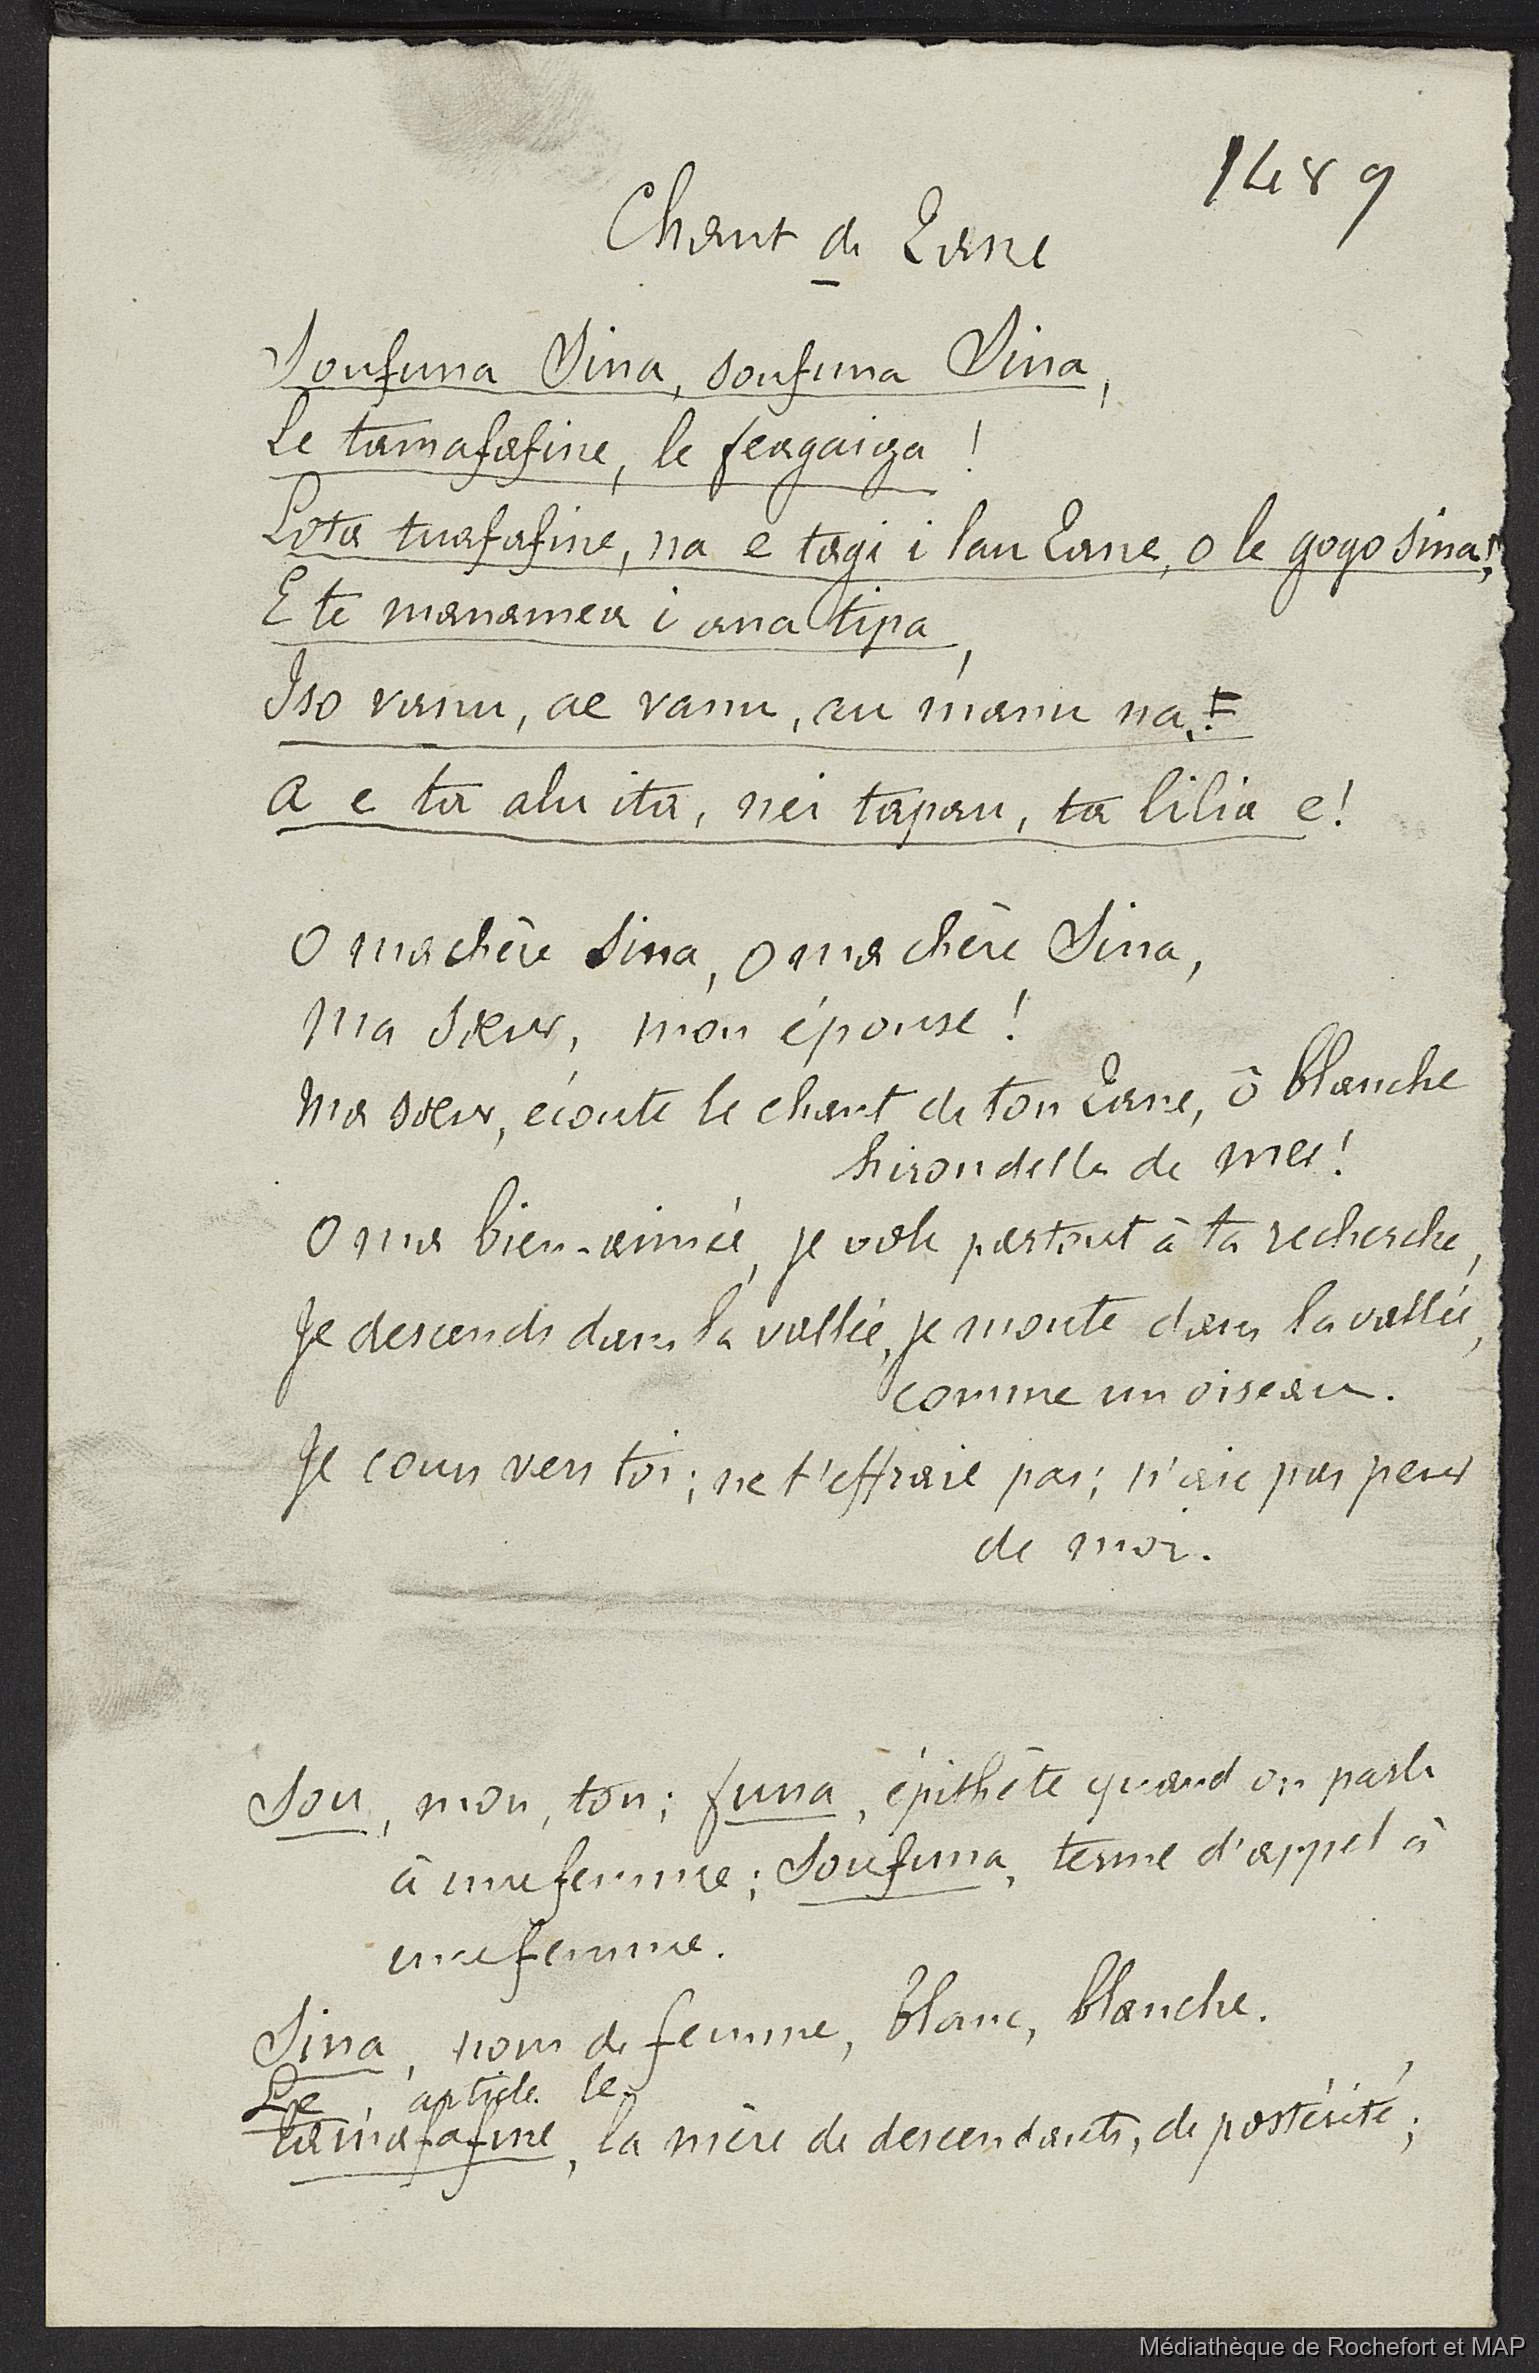 1489
Chant de Tane
Soufuna Sina, soufuna Sina,
Le tamafafine, le feagaiga !
Lota tuafafine, na e tagi i lau Tane, o le gogo sina!
E te manamea i ana tipa,
Iso vanu, ae vanu, au manu na.
A e ta alu ita, nei tapau, ta lilia e!
O ma chère Sina, O ma chère Sina,
Ma sœur, mon épouse !
Ma sœur, écoute le chant de ton Tane, ô blanche
hirondelle de mer!
O ma bien-aimée, je vole partout à ta recherche,
Je descends dans la vallée, je monte dans la vallée,
comme un oiseau.
Je cours vers toi; ne t'effraie pas; n'aie pas peur
de moi.
Sou, mon, ton; funa, épithète quand on parle
à une femme; Soufuna, terme d'appel à
une femme.
Sina, nom de femme, blanc, blanche.
Le, article le,
tamafafine, la mère de descendants, de postérité;
Médiathèque de Rochefort et MAP